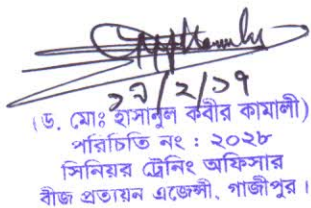 ২৯/২/১৭
(ড. মোঃ হাসানুল কবীর কামালী)
পরিচিতি নং : ২০২৮
সিনিয়র ট্রেনিং অফিসার
বীজ প্রত্যয়ন এজেন্সী, গাজীপুর।